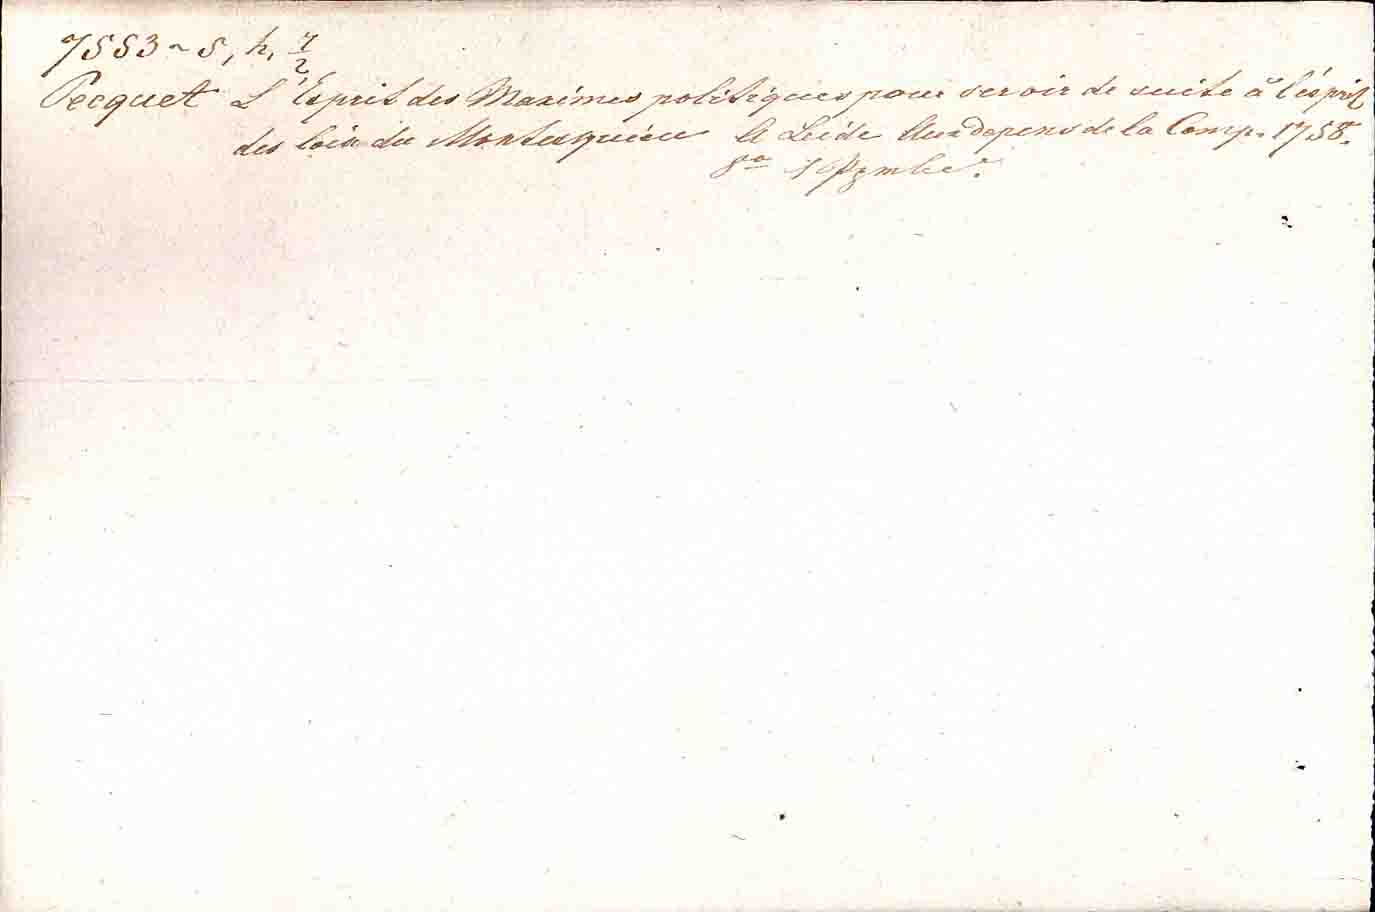 7553 ~ 5, h, 7/2
Pecquet L'Esprit des Maximes politiques pour servir de suite à l'ésprit
des lois du Montesquieu A Leide Aux depens de la Comp. 1758.
8º 1